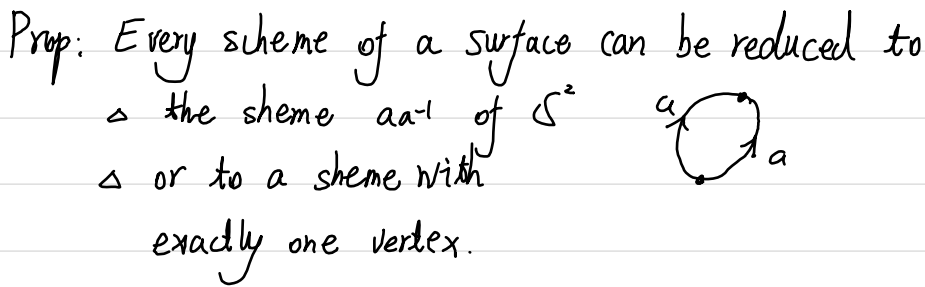 Prop: Every scheme of a surface can be reduced to
△ the sheme aa-1 of S²
a
a
△ or to a sheme with
exactly one vertex.